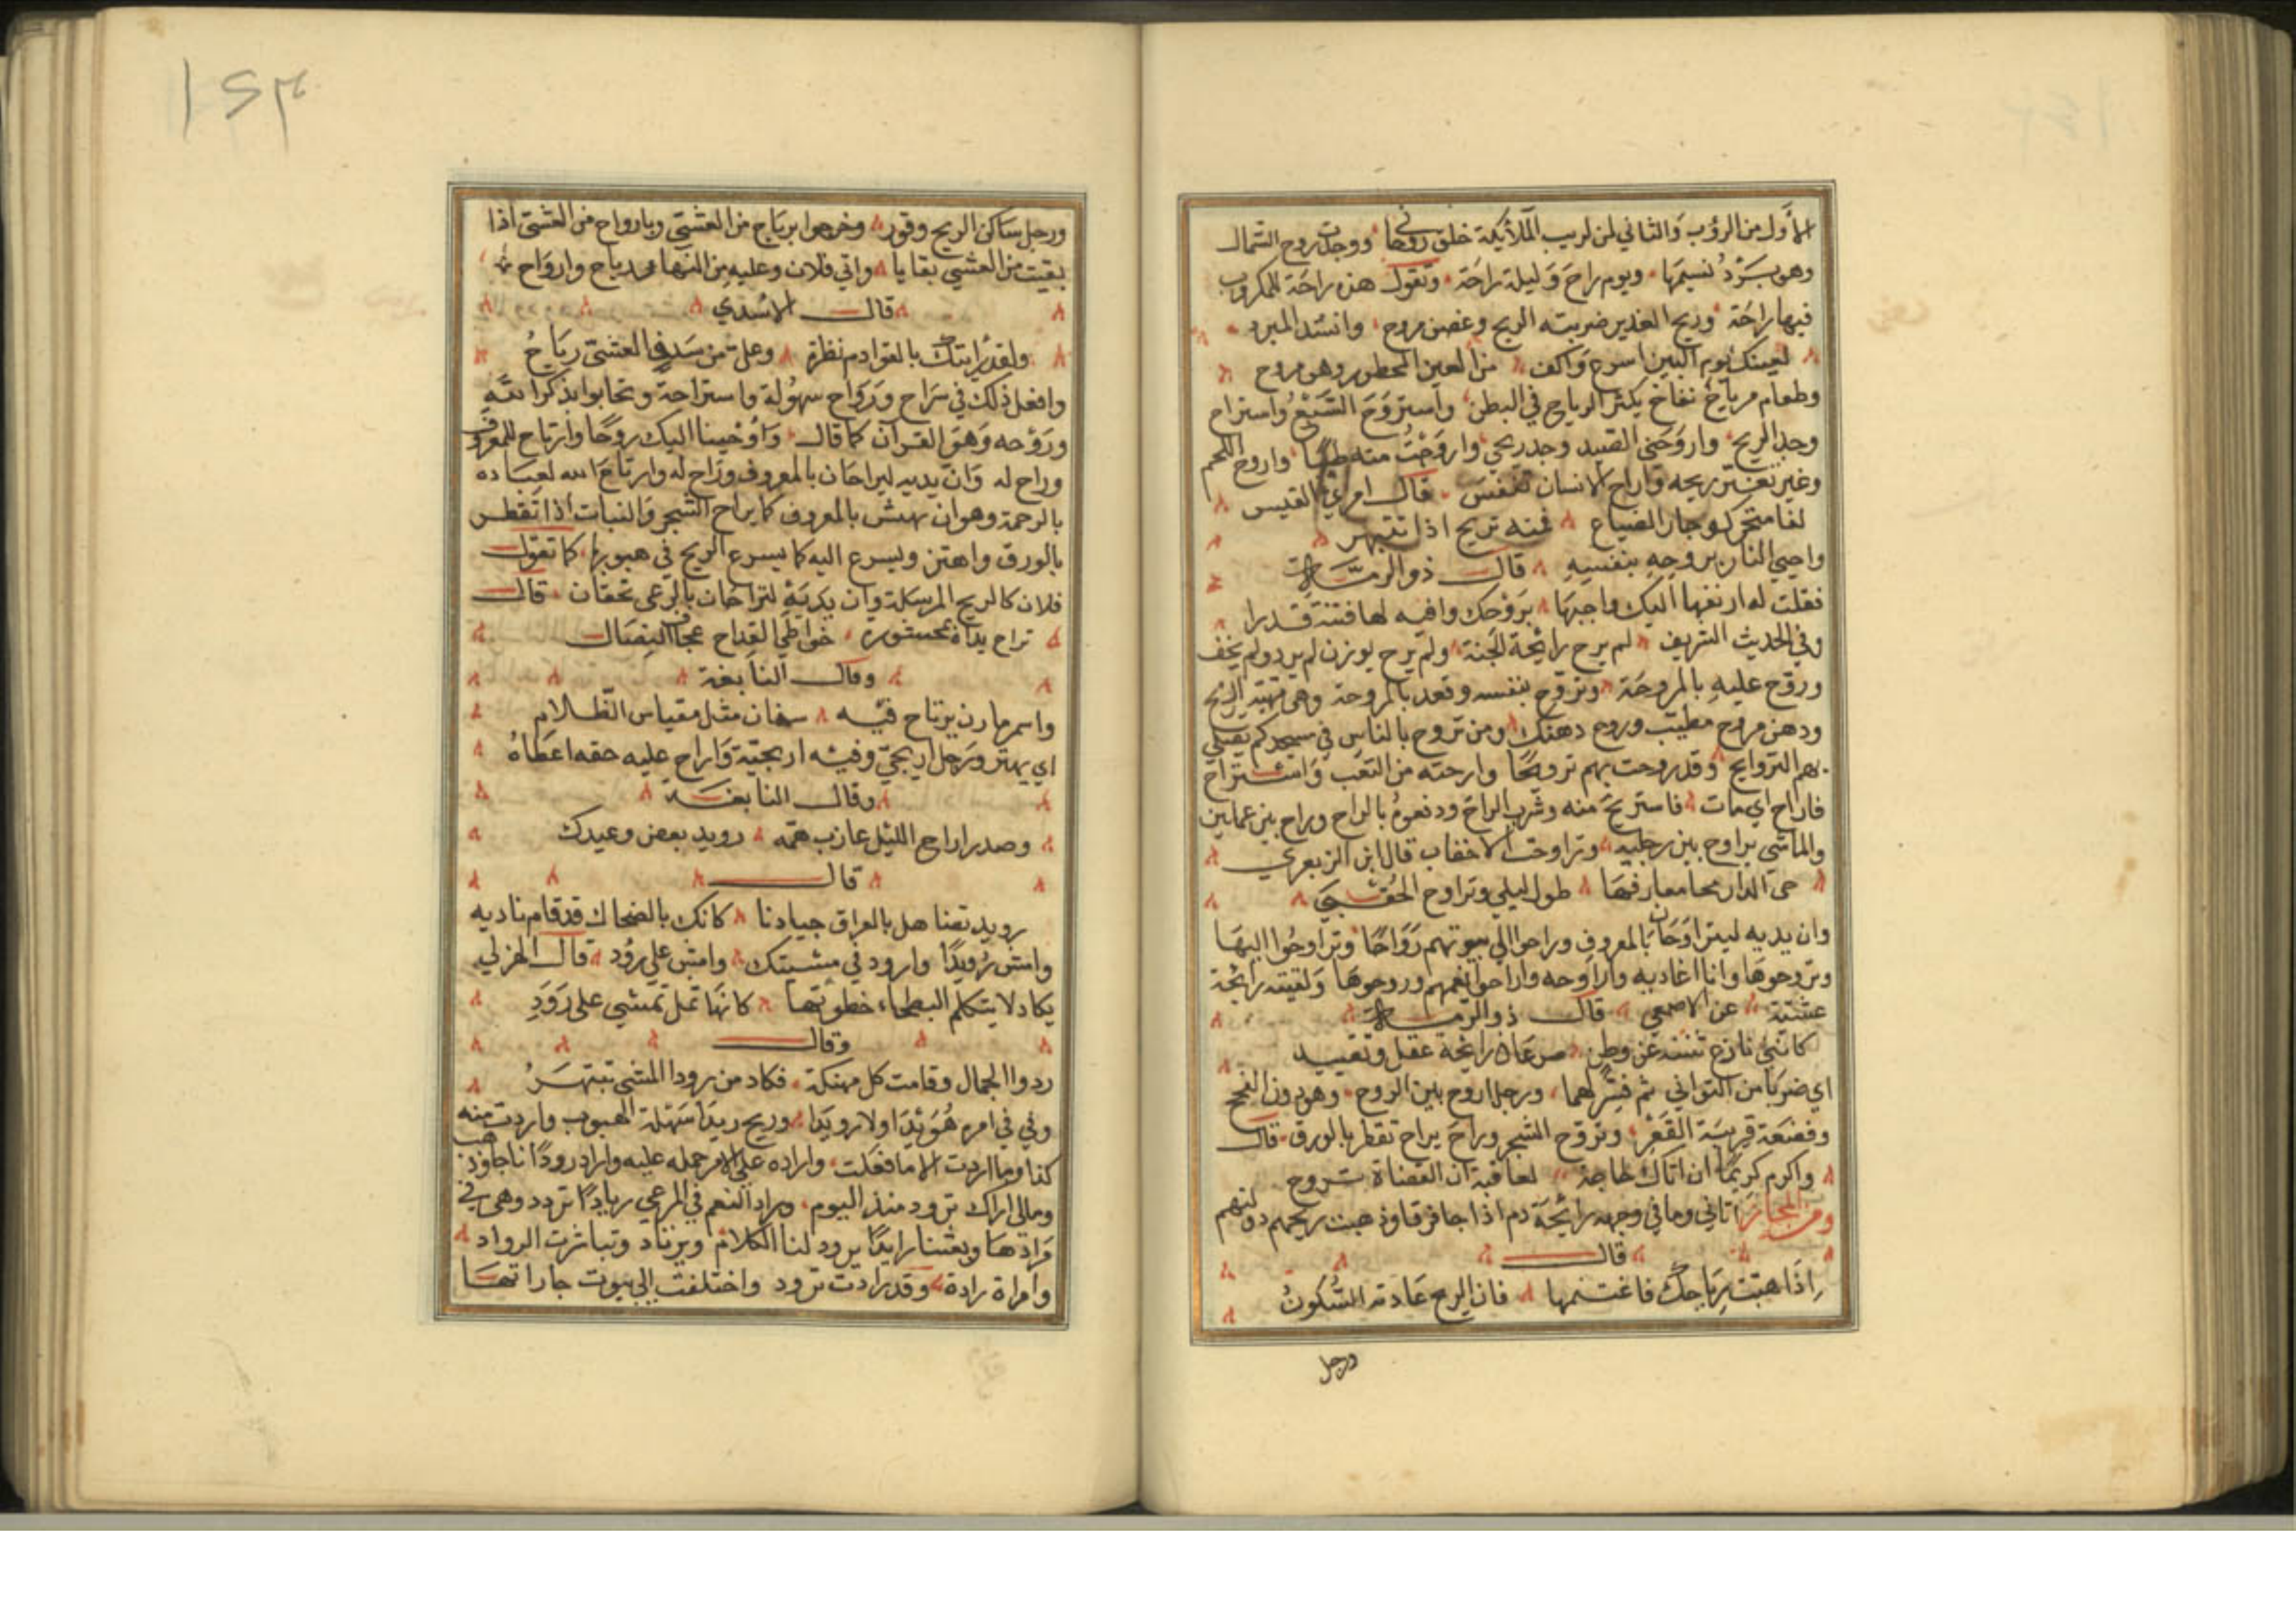 الاول من الرؤب والثاني لمن لريب الملائكة خلق روحا ووجدت روح الشمال
وهو برد نسيمها ويوم راح وليلة راحة وتقول هذه راحة للمكروب
فيها راحة وريح الغدير ضربته الريح وغصن مروح وانشد المبرد
لعينك يوم البين اسرع واكف من الغصن الممطور وهو مروح
وطعام مرياح نفاخ يكثر الرياح في البطن واستروح السبع واستراح
وجد الريح واروحني الصيد وجد ريحي واروحت منه طيبا واروح اللحم
وغيره تغير ريحه واراح الانسان تنفس قال امرئ القيس
لها منخر كوجار الضباع فمنه تريح اذا تنبهر
واحيي النار بروحه بنفسه قال ذو الرمة
فقلت له ارفعها اليك واحيها بروحك واقته لها قيتة قدرا
وفي الحديث الشريف لم يرح رائحة الجنة ولم يرح بوزن لم يرد ولم يخف
وروح عليه بالمروحة وتروح بنفسه وقعد بالمروحة وهي مهبة الريح
ودهن مروح مطيب وروح دهنك ومن تروح بالناس في مسجدكم يصلي
بهم التراويح وقد روحت بهم ترويحا وارحته من التعب واستراح
فاراح اي مات فاستريح منه وشرب الراح ودفعوه بالراح وراح بين عملين
والماشي يراوح بين رجليه وتراوحت الاحقاب قال ابن الزبعري
حي الديار محا معارفها طول البلي وتراوح الحقب
وان يديه ليتراوحان بالمعروف وراحوا الي بيوتهم رواحا وتراوحوا اليها
وتروحوها وانا اغاديه واراوحه واراحوا نعمهم وروحوها ولقيته رائحة
عشية عن الاصمعي قال ذو الرمة
كانني نازع يثنيه عن وطن صرعان رائحة عقل وتقييد
اي ضربا من التواني ثم فسرهما ورجل اروح بين الروح وهو دون الفحج
وقصعة قريبة القعر وتروح الشجر وراح يراح تفطر بالورق قال
واكرم كريما ان اتاك لحاجة لعاقبة ان العضاة تروح
ومن المجاز اتاني وما في وجهه رائحة دم اذا جاء فرقا وذهبت ريحهم دولتهم
قال
اذا هبت رياحك فاغتنمها فان الريح عادته السكون
ورجل
١٤٣
ورجل ساكن الريح وقور وخرجوا برياح من العشي وبارواح من العشي اذا
بقيت من العشي بقايا واتي فلان وعليه من النهار رياح وارواح
قال الاسدي
ولقد رايتك بالقوادم نظرة وعلي من سدف العشي رياح
وافعل ذلك في سراح ورواح سهولة واستراحة وتحابوا بذكر الله
وروحه وهو القران كما قال واوحينا اليك روحا وارتاح للمعروف
وراح له وان يديه ليراحان بالمعروف وراح له وارتاح الله لعباده
بالرحمة وهو ان يهش بالمعروف كما يراح الشجر والنبات اذا تفطر
بالورق واهتز ويسرع اليه كما يسرع الريح في هبوبها كما تقول
فلان كالريح المرسلة وان يديه لتراحان بالرمي تخفان قال
تراح يداه بمحشورة خواظي القداح عجاف النصال
وقال النابغة
واسمر مارن يرتاح فيه سنان مثل مقباس الظلام
اي يهتز ورجل اريحي وفيه اريحية واراح عليه حقه اعطاه
وقال النابغة
وصدر اراح الليل عازب همه رويد بعض وعيدك
قال
رويد تصنا هل بالعراق جيادنا كانك بالضحاك قد قام ناديه
وامش رويدا وارود في مشيتك وامش علي رود قال الهزلي
يكاد لا يتكلم البطحاء خطوتها كانها ثمل تمشي علي رود
وقال
ردوا الجمال وقامت كل مهنكة فكاد من رودا المشي تبتهر
وفي في امره هوئدا ولا رويدا وريح ريدا سهلة الهبوب واردت منه
كذا وما اردت الا ما فعلت واراده علي الامر حمله عليه وارادرودانا جاوذهب
ومالي اراك ترود منذ اليوم وراد النعم في المرعي ريادا تردد وهي في
مرادها وبعثنا رايدا يرود لنا الكلام ويرتاد وتباشرت الرواد
وامراة رادة وقد رادت ترود واختلفت الي بيوت جاراتها